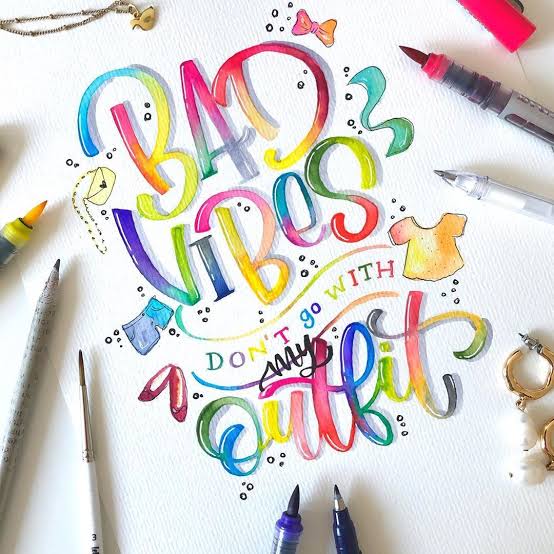 BAD
VIBES
DON'T go WITH
my
outfit
3